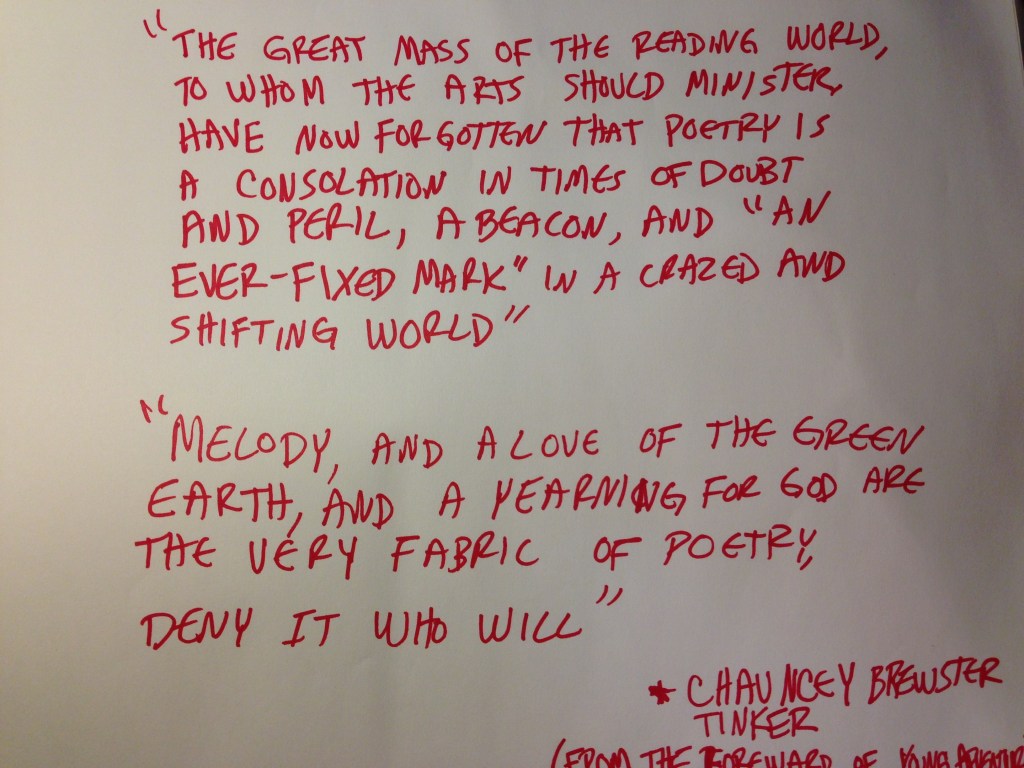 "THE GREAT MASS OF THE READING WORLD,
TO WHOM THE ARTS SHOULD MINISTER,
HAVE NOW FORGOTTEN THAT POETRY IS
A CONSOLATION IN TIMES OF DOUBT
AND PERIL, A BEACON, AND "AN
EVER-FIXED MARK" IN A CRAZED AND
SHIFTING WORLD"
"MELODY, AND A LOVE OF THE GREEN
EARTH, AND A YEARNING FOR GOD ARE
THE VERY FABRIC OF POETRY,
DENY IT WHO WILL"
* CHAUNCEY BREWSTER
TINKER
(FROM THE FOREWARD OF YOUNG